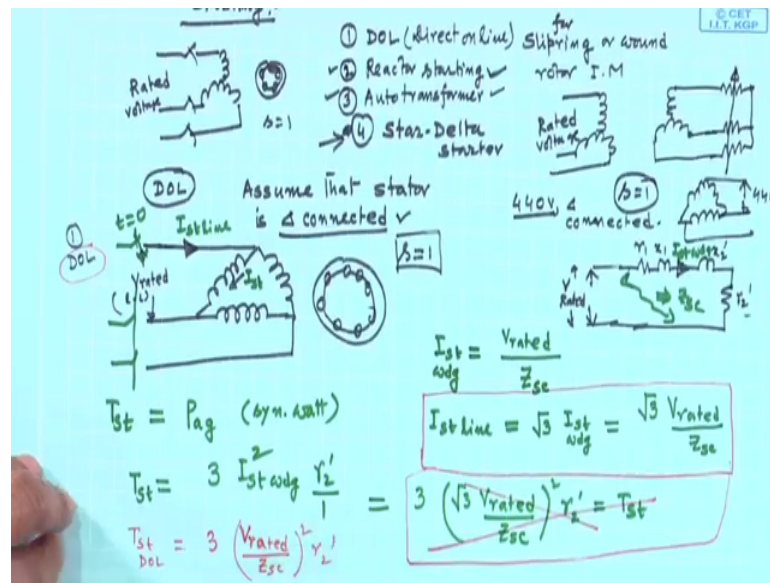 Starting:
© CET
I.I.T. KGP
① DOL (direct on line)
② Reactor starting
③ Autotransformer
④ Star-Delta
starter
for
Slipring or wound
rotor I.M
Rated
voltage
s=1
Rated
voltage
DOL
Assume that stator
is Δ connected
440V, Δ
connected.
s=1
44
t=0
① DOL
Ist line
Vrated
(L-L)
Ist
s=1
r₁ x₁ Ist wdg x₂'
V
Rated
⇒ Zsc
r₂'
Ist wdg = Vrated / Zsc
Ist line = √3 Ist wdg = √3 Vrated / Zsc
Tst = Pag (syn. watt)
Tst = 3 I²st wdg r₂' / 1 = 3 (√3 Vrated / Zsc)² r₂' = Tst
Tst DOL = 3 (Vrated / Zsc)² r₂'